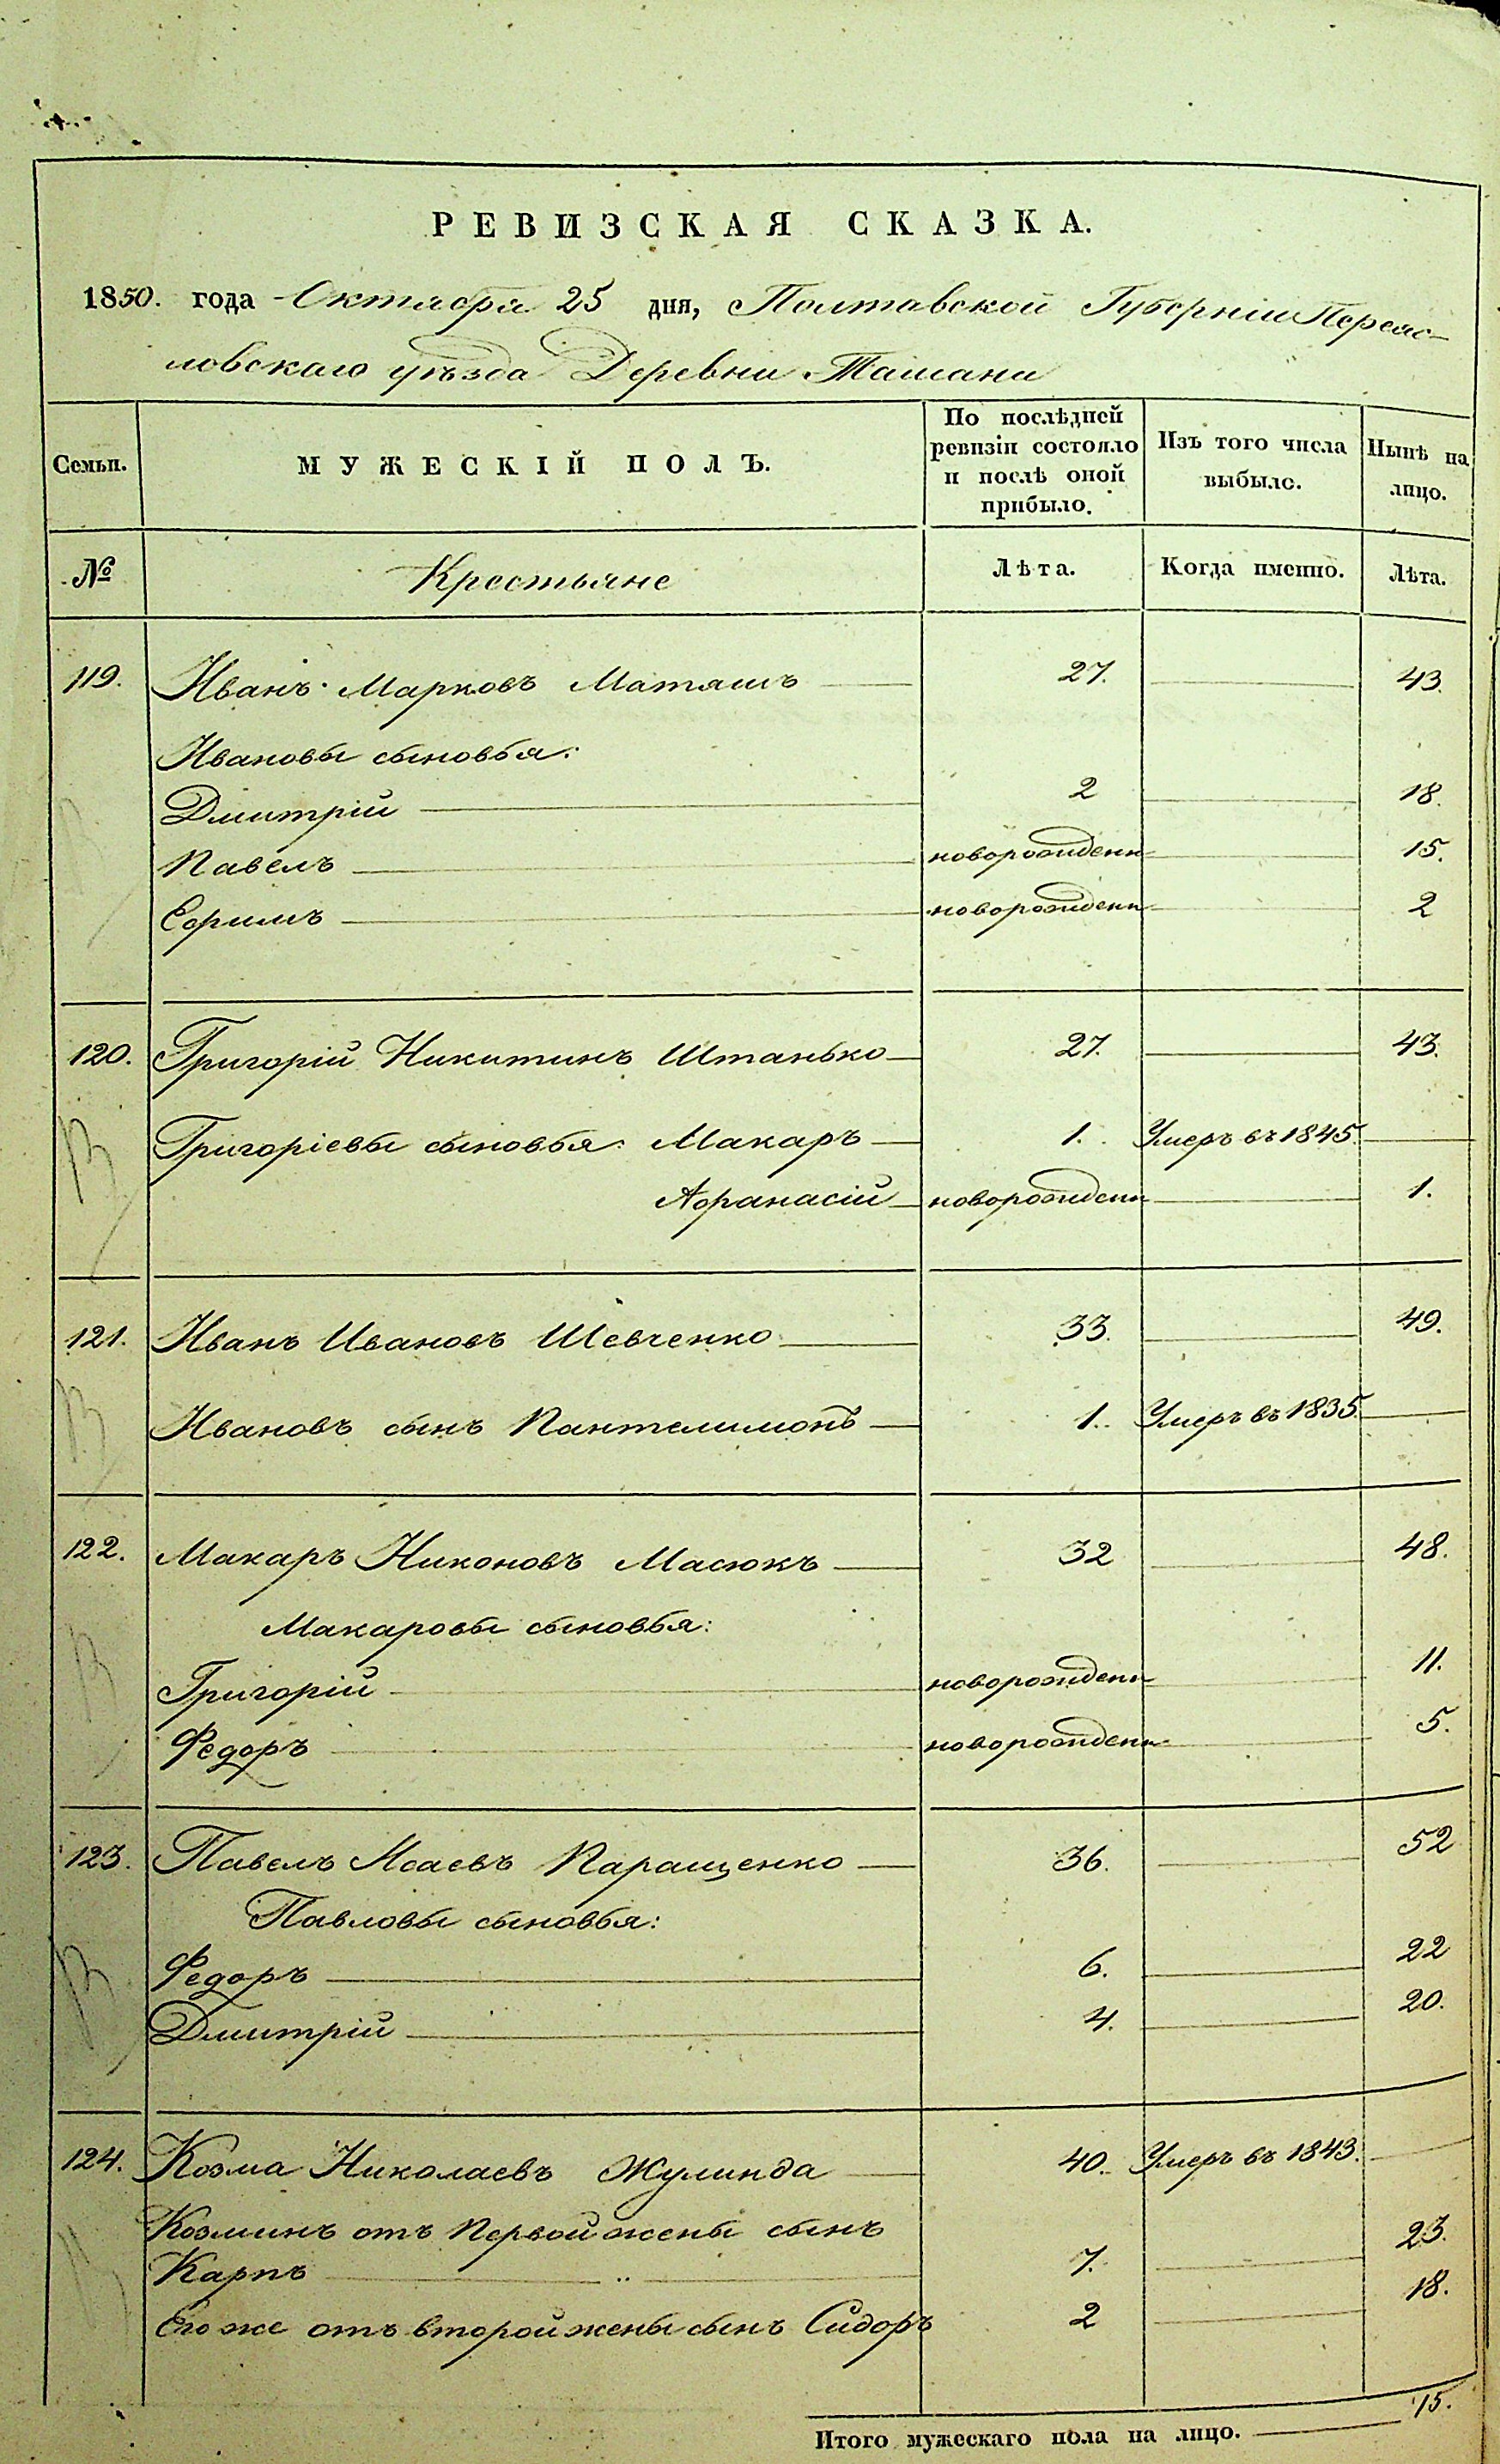 РЕВИЗСКАЯ СКАЗКА.
1850. года Октября 25 дня, Полтавской Губерніи Переяс-
ловскаго уѣзда Деревни Ташани
Семьи. МУЖЕСКІЙ ПОЛЪ. По послѣдней ревизіи состояло и послѣ оной прибыло. Изъ того числа выбыло. Нынѣ на лицо.
№ Крестьяне Лѣта. Когда именно. Лѣта.
119. Иванъ Марковъ Маташъ 27. 43.
Ивановы сыновья:
Дмитрій 2 18.
Павелъ новорожденн 15.
Ефимъ новорожденн 2
120. Григорій Никитинъ Штанько 27. 43.
Григоріевы сыновья: Макаръ 1. Умеръ въ 1845.
Афанасій новорожденн 1.
121. Иванъ Ивановъ Шевченко 33. 49.
Ивановъ сынъ Пантелимонъ 1. Умеръ въ 1835.
122. Макаръ Никоновъ Масюкъ 32 48.
Макаровы сыновья:
Григорій новорожденн 11.
Федоръ новорожденн 5.
123. Павелъ Исаевъ Паращенко 36. 52
Павловы сыновья:
Федоръ 6. 22
Дмитрій 4. 20.
124. Козма Николаевъ Жулинда 40. Умеръ въ 1843.
Козминъ отъ первой жены сынъ
Карпъ 7. 23.
Его же отъ второй жены сынъ Сидоръ 2 18.
Итого мужескаго пола на лицо. 15.